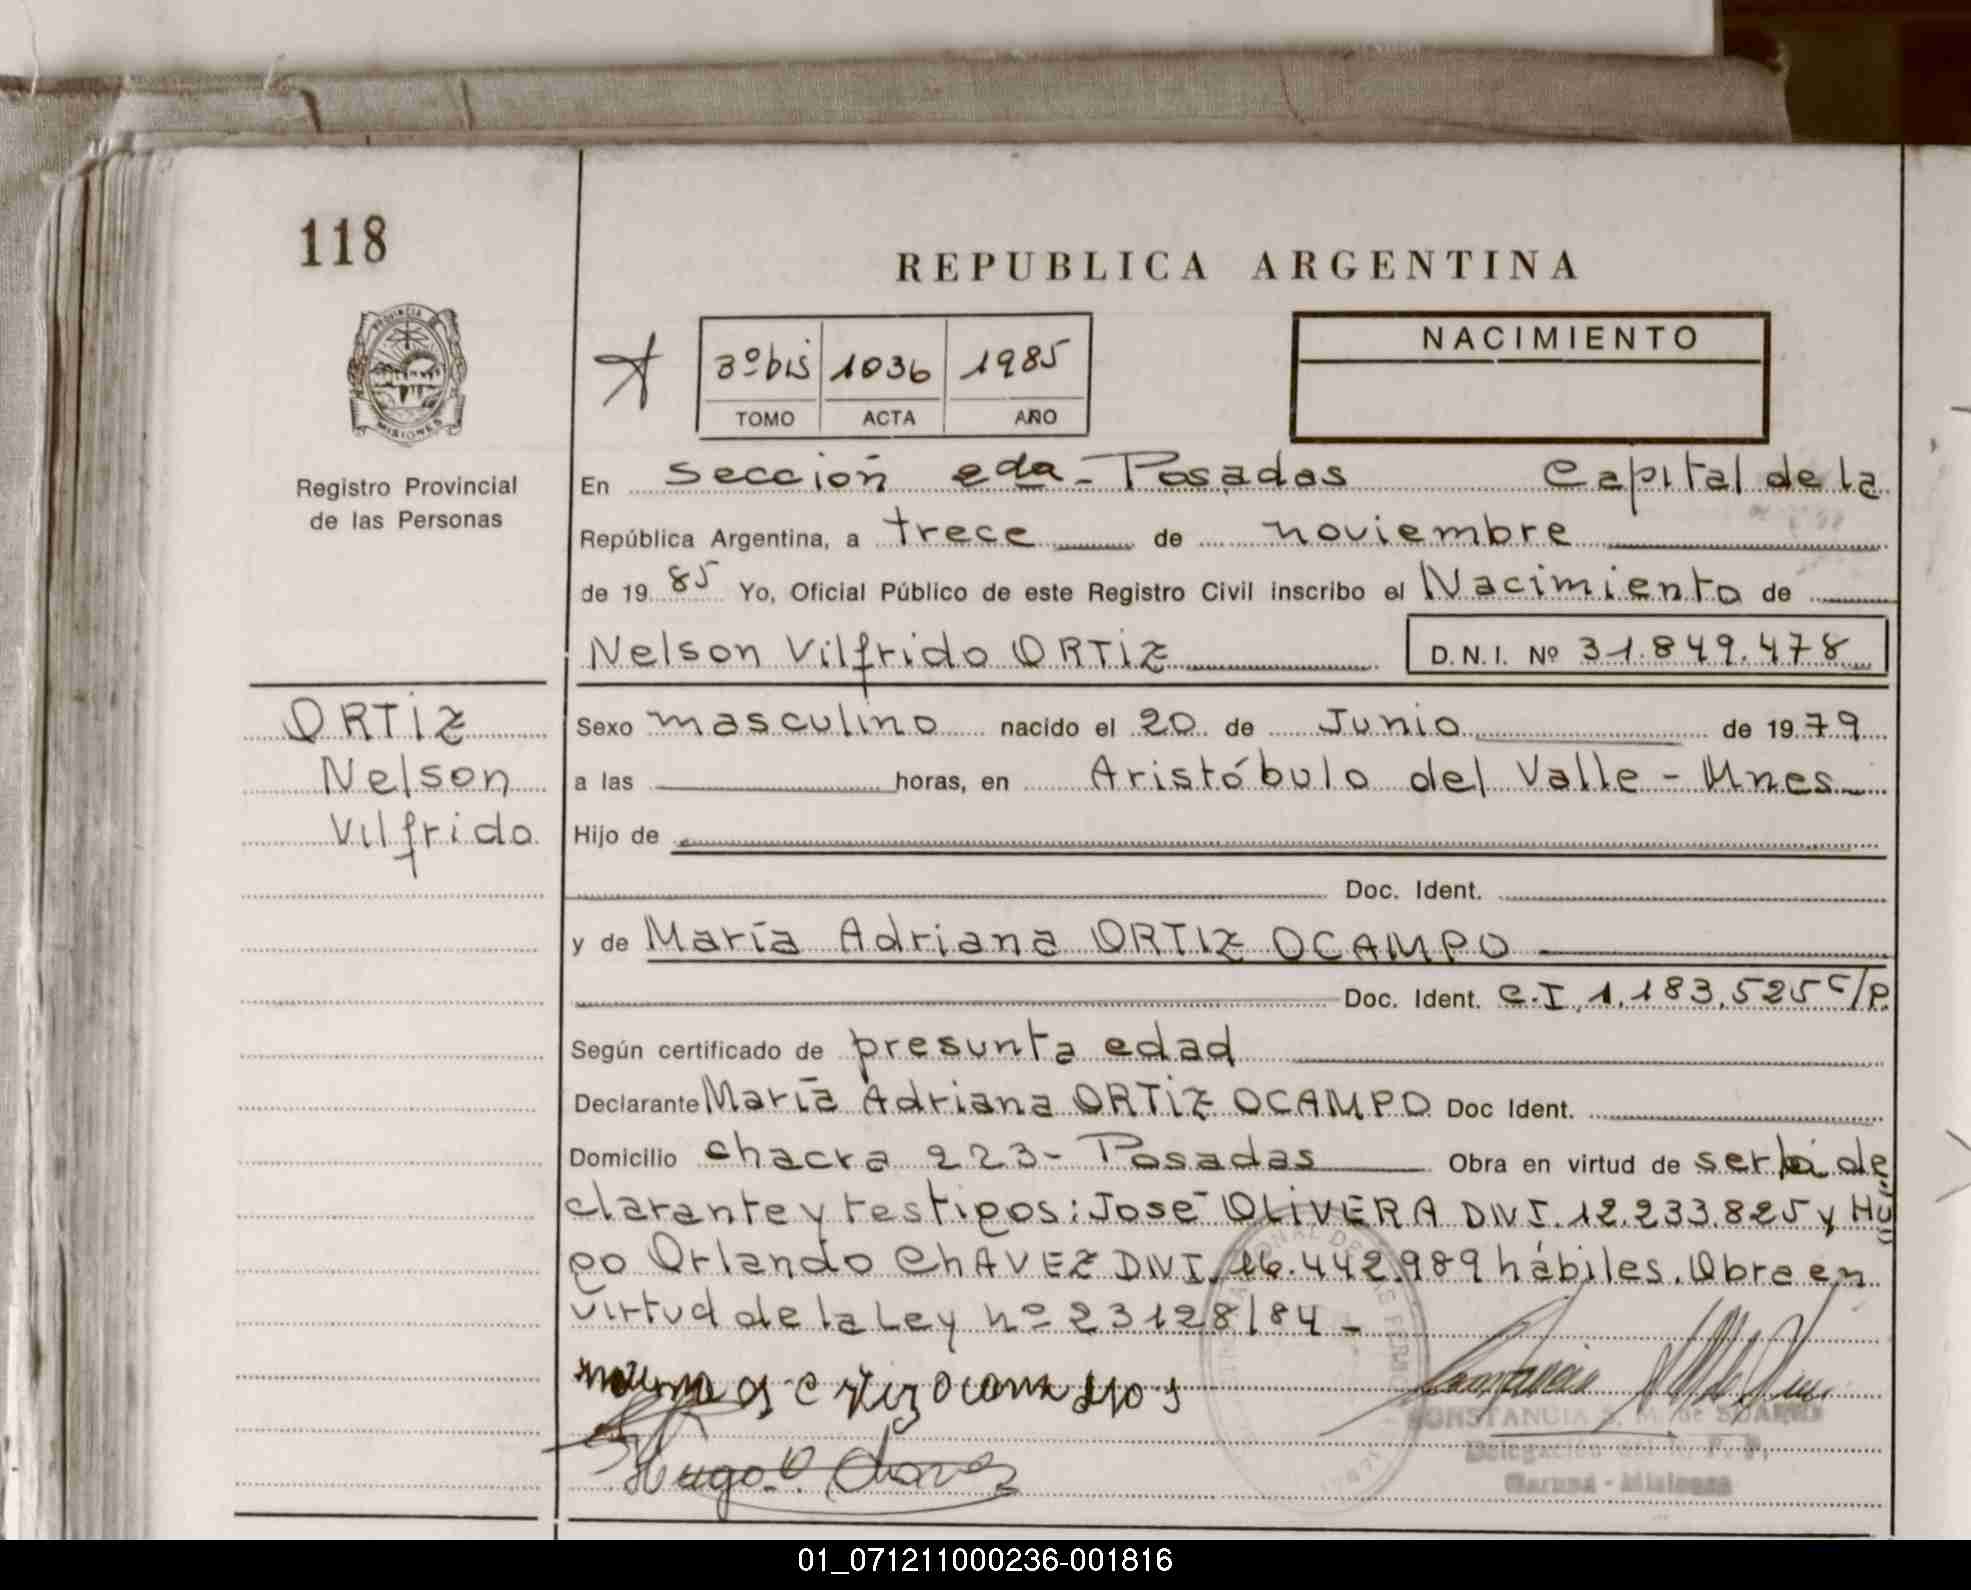 118
REPUBLICA ARGENTINA
PROVINCIA DE
MISIONES
3º bis 1036 1985
TOMO ACTA AÑO
NACIMIENTO
Registro Provincial
de las Personas
En Sección 2da - Posadas Capital de la
República Argentina, a trece de noviembre
de 1985 Yo, Oficial Público de este Registro Civil inscribo el Nacimiento de
Nelson Vilfrido ORTIZ D.N.I. Nº 31.849.478
ORTIZ
Nelson
Vilfrido
Sexo masculino nacido el 20 de Junio de 1979
a las horas, en Aristóbulo del Valle - Mnes
Hijo de
Doc. Ident.
y de María Adriana ORTIZ OCAMPO
Doc. Ident. C.I. 1.183.525 C/P.
Según certificado de presunta edad
Declarante María Adriana ORTIZ OCAMPO Doc Ident.
Domicilio chacra 223 - Posadas Obra en virtud de ser la de
clarante y testigos: José OLIVERA DNI. 12.233.825 y Hu
go Orlando ChAVEZ DNI. 16.442.989 hábiles. Obra en
virtud de la Ley nº 23128/84 -
Hugo O. Chavez
CONSTANCIA S. M. de SUAREZ
Delegación del R. P. P.
Garupá - Misiones
01_071211000236-001816